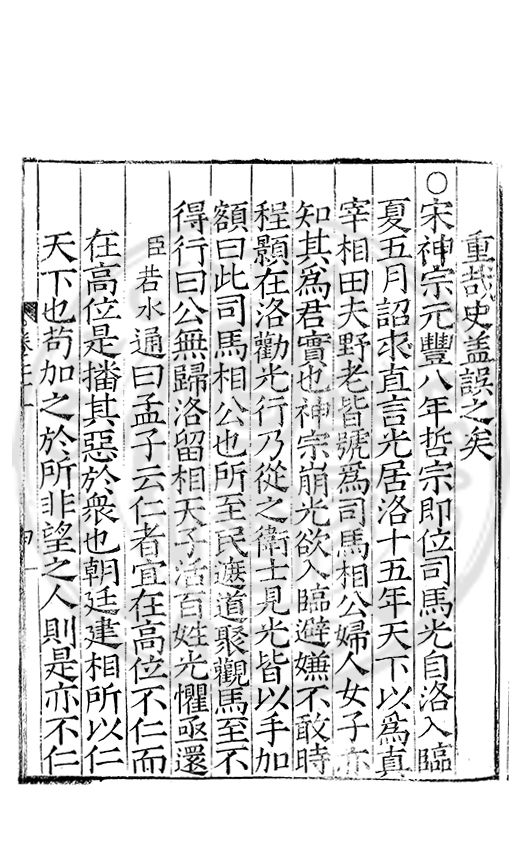 重哉史盖誤之矣
○宋神宗元豐八年哲宗即位司馬光自洛入臨
夏五月詔求直言光居洛十五年天下以爲真
宰相田夫野老皆號爲司馬相公婦人女子亦
知其爲君實也神宗崩光欲入臨避嫌不敢時
程顥在洛勸光行乃從之衛士見光皆以手加
額曰此司馬相公也所至民遮道聚觀馬至不
得行曰公無歸洛留相天子活百姓光懼亟還
臣若水通曰孟子云仁者宜在高位不仁而
在高位是播其惡於衆也朝廷建相所以仁
天下也苟加之於所非望之人則是亦不仁